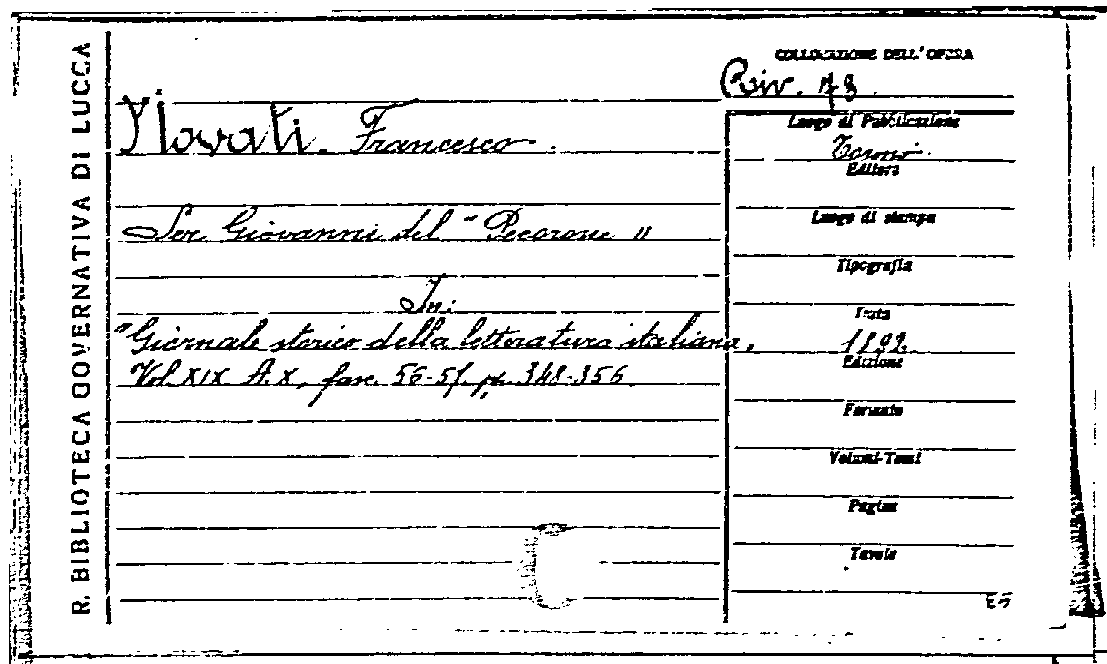 R. BIBLIOTECA GOVERNATIVA DI LUCCA
COLLOCAZIONE DELL'OPERA
Riv. 78
Novati Francesco
Ser Giovanni del "Pecorone"
In:
"Giornale storico della letteratura italiana,
Vol. XIX A. X, fasc. 56-57. pp. 348-356
Luogo di Pubblicazione
Torino
Editore
Luogo di stampa
Tipografia
Data
1892
Edizione
Formato
Volumi-Tomi
Pagine
Tavole